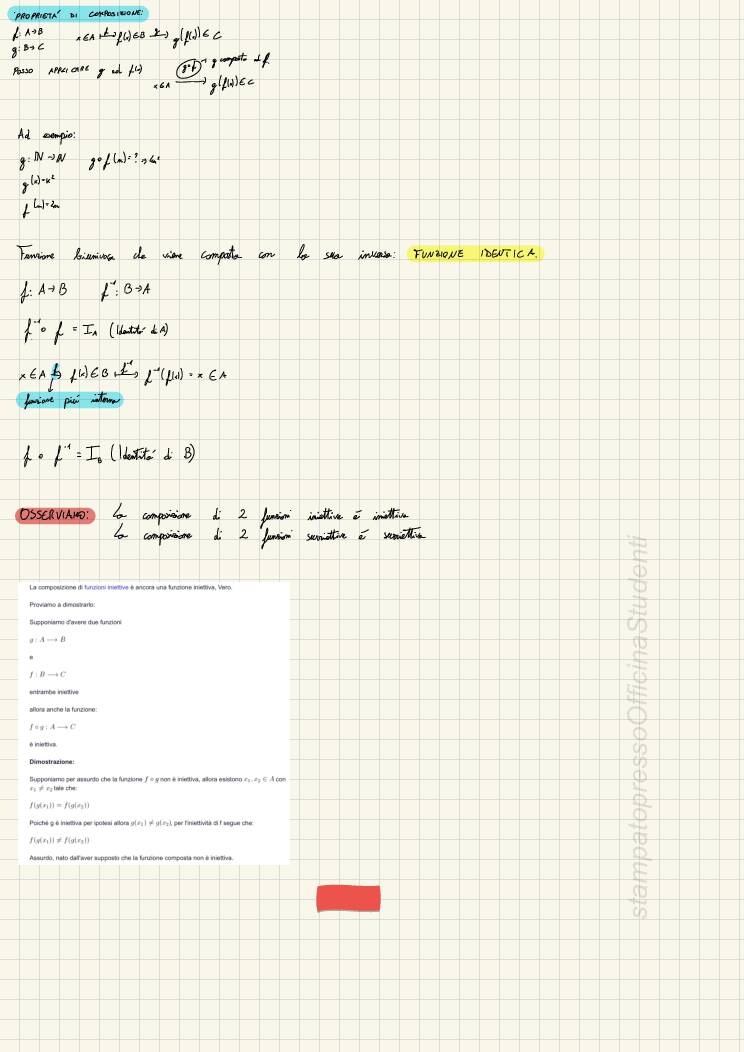 PROPRIETÁ DI COMPOSIZIONE:
f: A→B
g: B→C
x∈A f→ f(x)∈B g→ g(f(x))∈C
POSSO APPLICARE g ad f(x)
g∘f → g composto di f
x∈A → g(f(x))∈C
Ad esempio:
g: N→N g∘f(n)=? → 4n²
g(x)=x²
f(n)=2n
Funzione biunivoca che viene composta con la sua inversa: FUNZIONE IDENTICA.
f: A→B f⁻¹: B→A
f⁻¹∘ f = I_A (Identitá di A)
x∈A f→ f(x)∈B f⁻¹→ f⁻¹(f(x)) = x ∈A
funzione piú interna
f ∘ f⁻¹ = I_B (Identitá di B)
OSSERVIAMO: La composizione di 2 funzioni iniettive é iniettiva
La composizione di 2 funzioni suriettive é suriettiva
La composizione di funzioni iniettive è ancora una funzione iniettiva, Vero.
Proviamo a dimostrarlo:
Supponiamo d'avere due funzioni
g : A ⟶ B
e
f : B ⟶ C
entrambe iniettive
allora anche la funzione:
f ∘ g : A ⟶ C
è iniettiva.
Dimostrazione:
Supponiamo per assurdo che la funzione f ∘ g non è iniettiva, allora esistono x₁, x₂ ∈ A con
x₁ ≠ x₂ tale che:
f(g(x₁)) = f(g(x₂))
Poiché g è iniettiva per ipotesi allora g(x₁) ≠ g(x₂), per l'iniettività di f segue che:
f(g(x₁)) ≠ f(g(x₂))
Assurdo, nato dall'aver supposto che la funzione composta non è iniettiva.
stampatopressoOfficinaStudenti